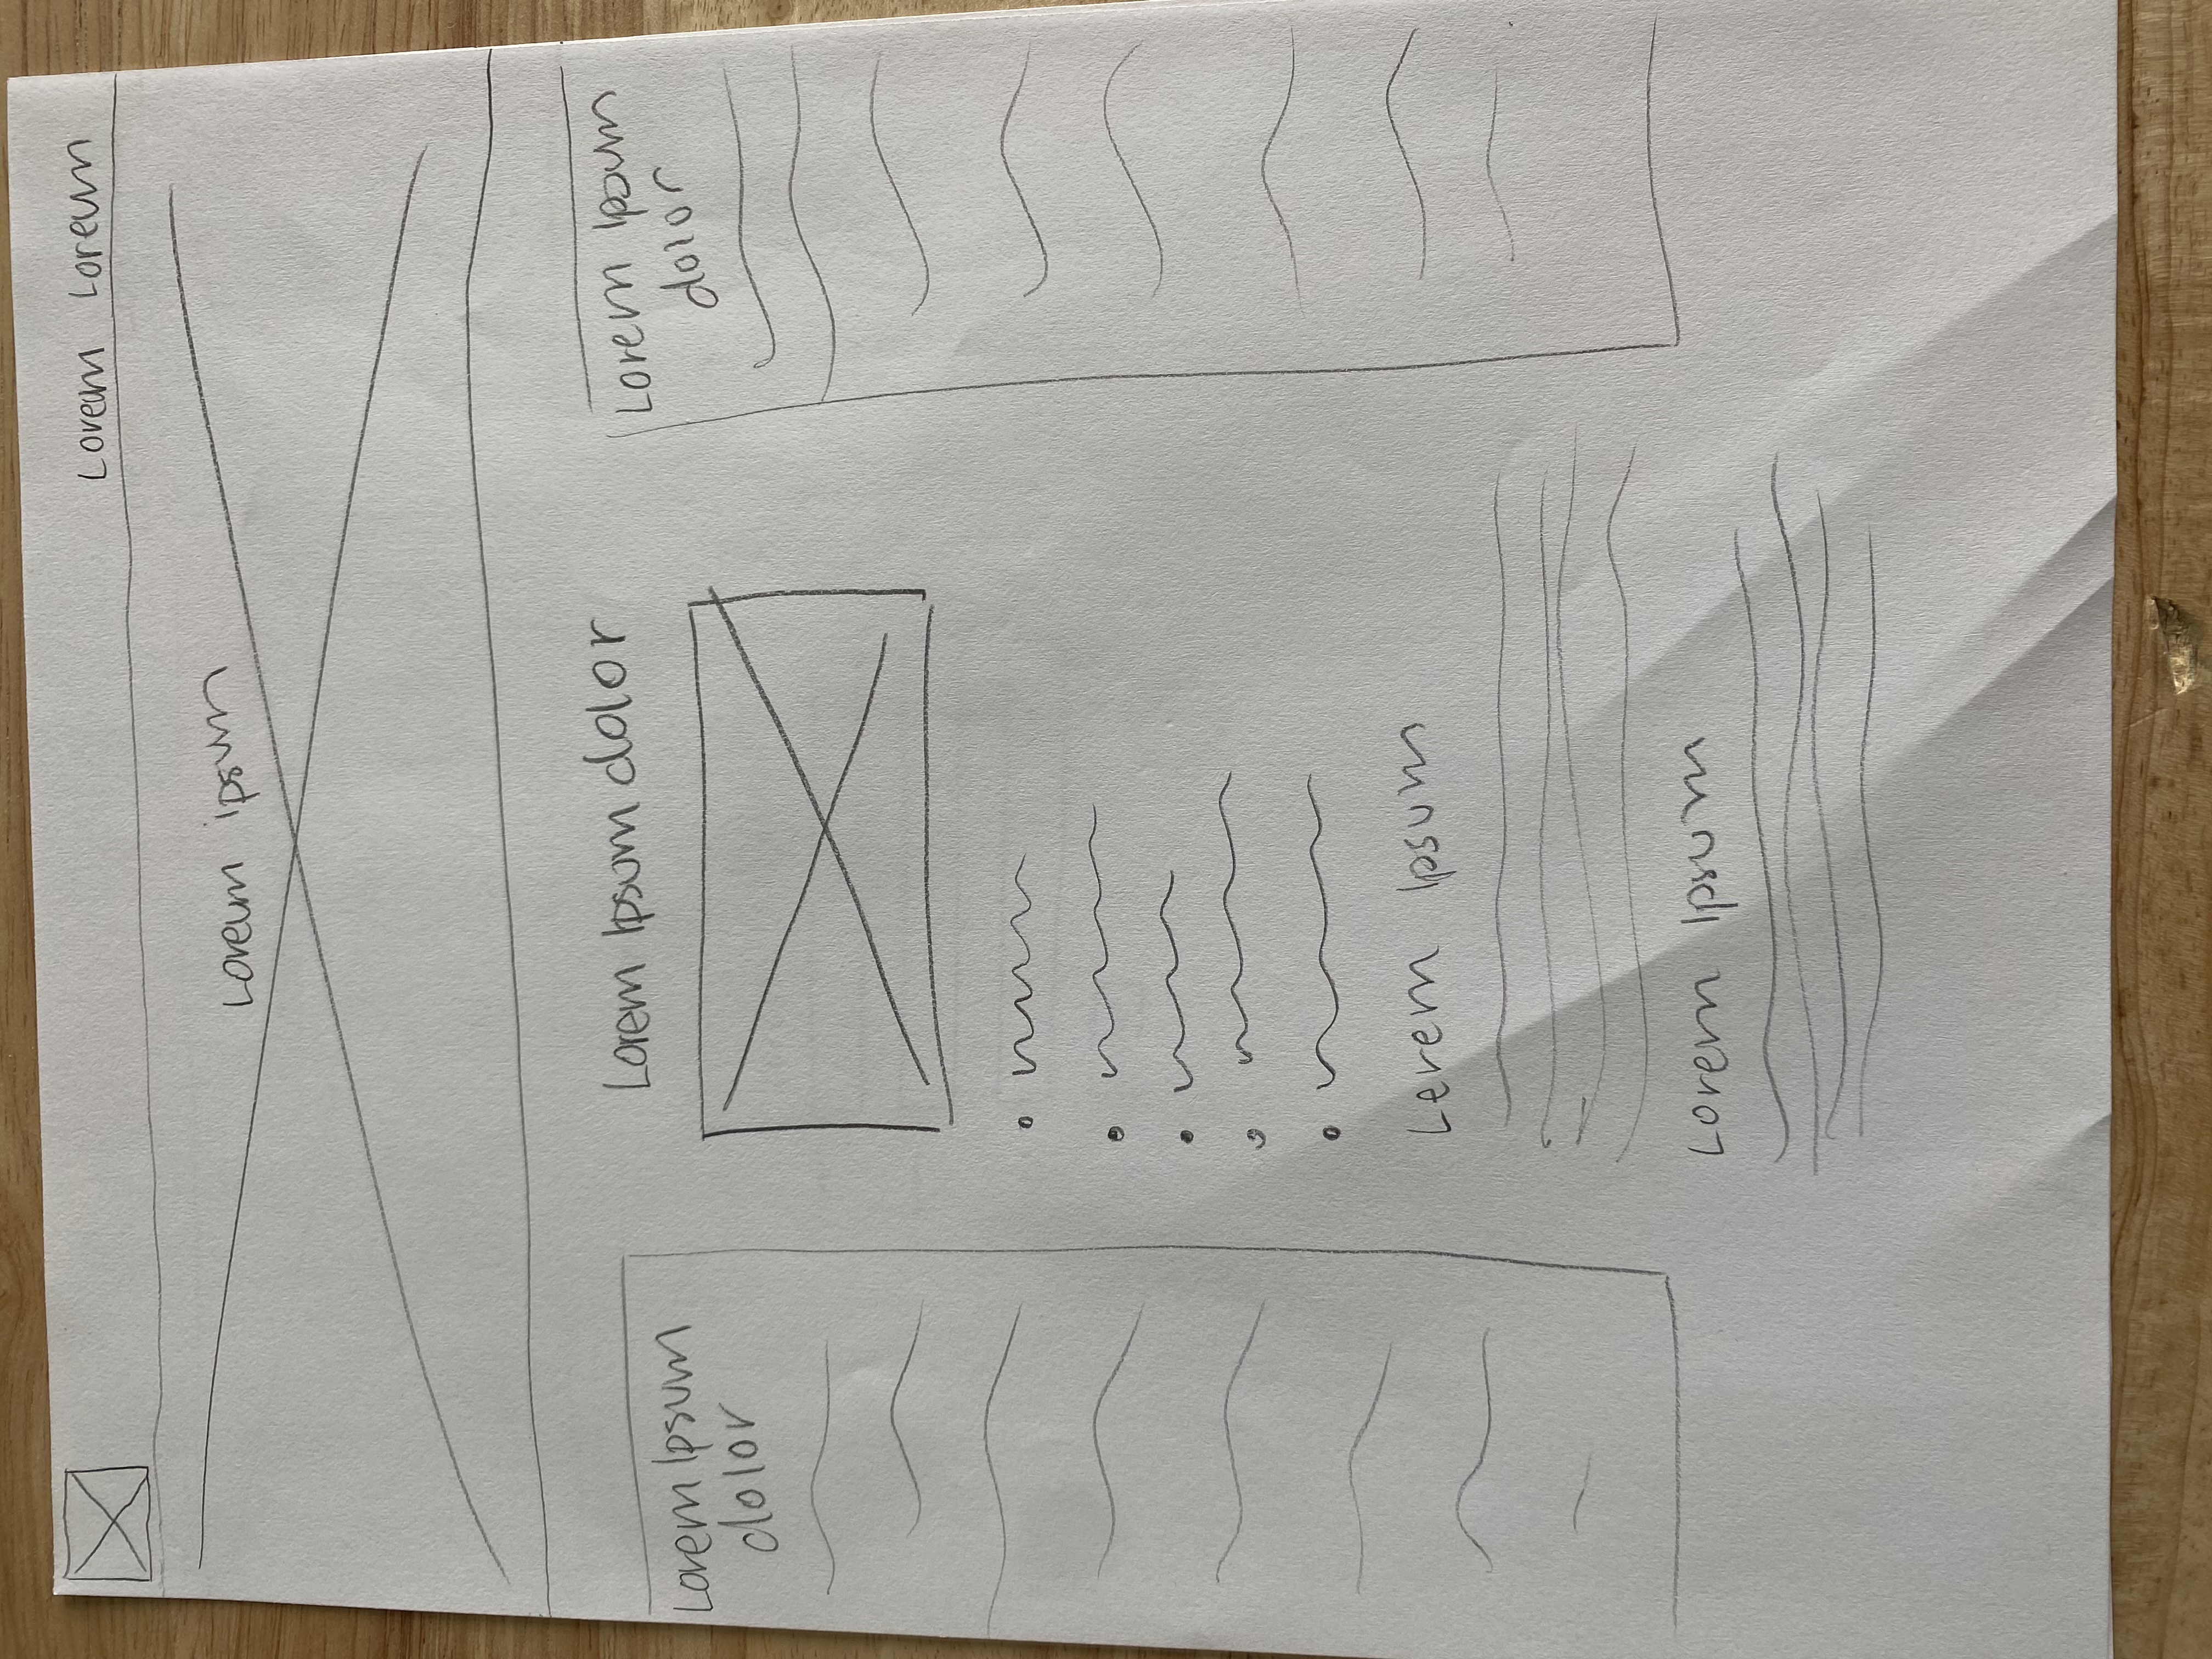 Loream Loreum
Loreum ipsum
Lorem Ipsum dolor
Lorem Ipsum
dolor
Lorem Ipsum
dolor
Lerem Ipsum
Lorem Ipsum